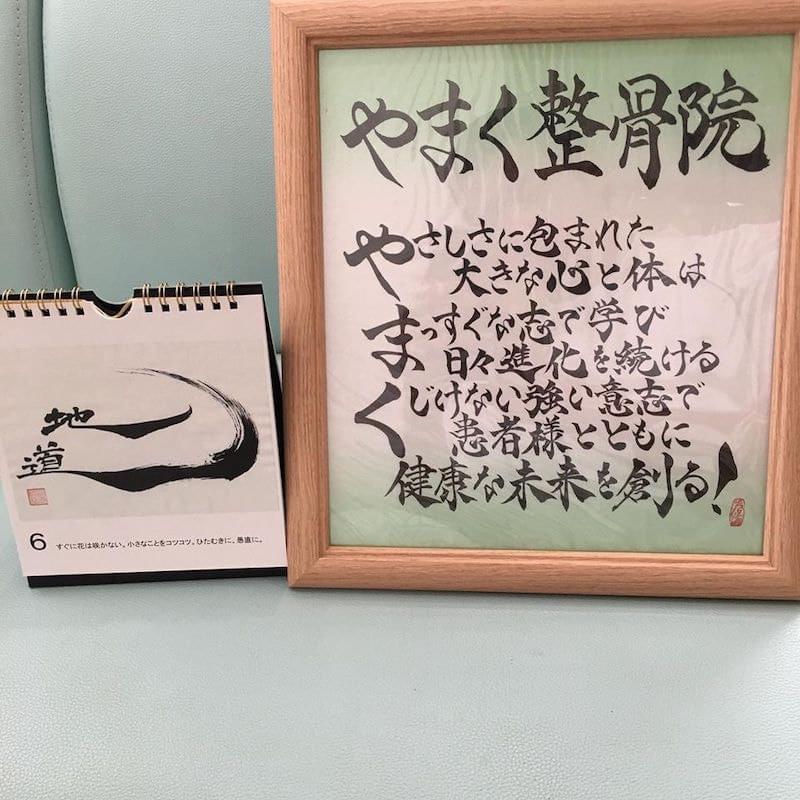 地
道
6 すぐに花は咲かない。小さなことをコツコツ。ひたむきに、愚直に。
やまく整骨院
やさしさに包まれた
大きな心と体は
まっすぐな志で学び
日々進化を続ける
くじけない強い意志で
患者様とともに
健康な未来を創る!